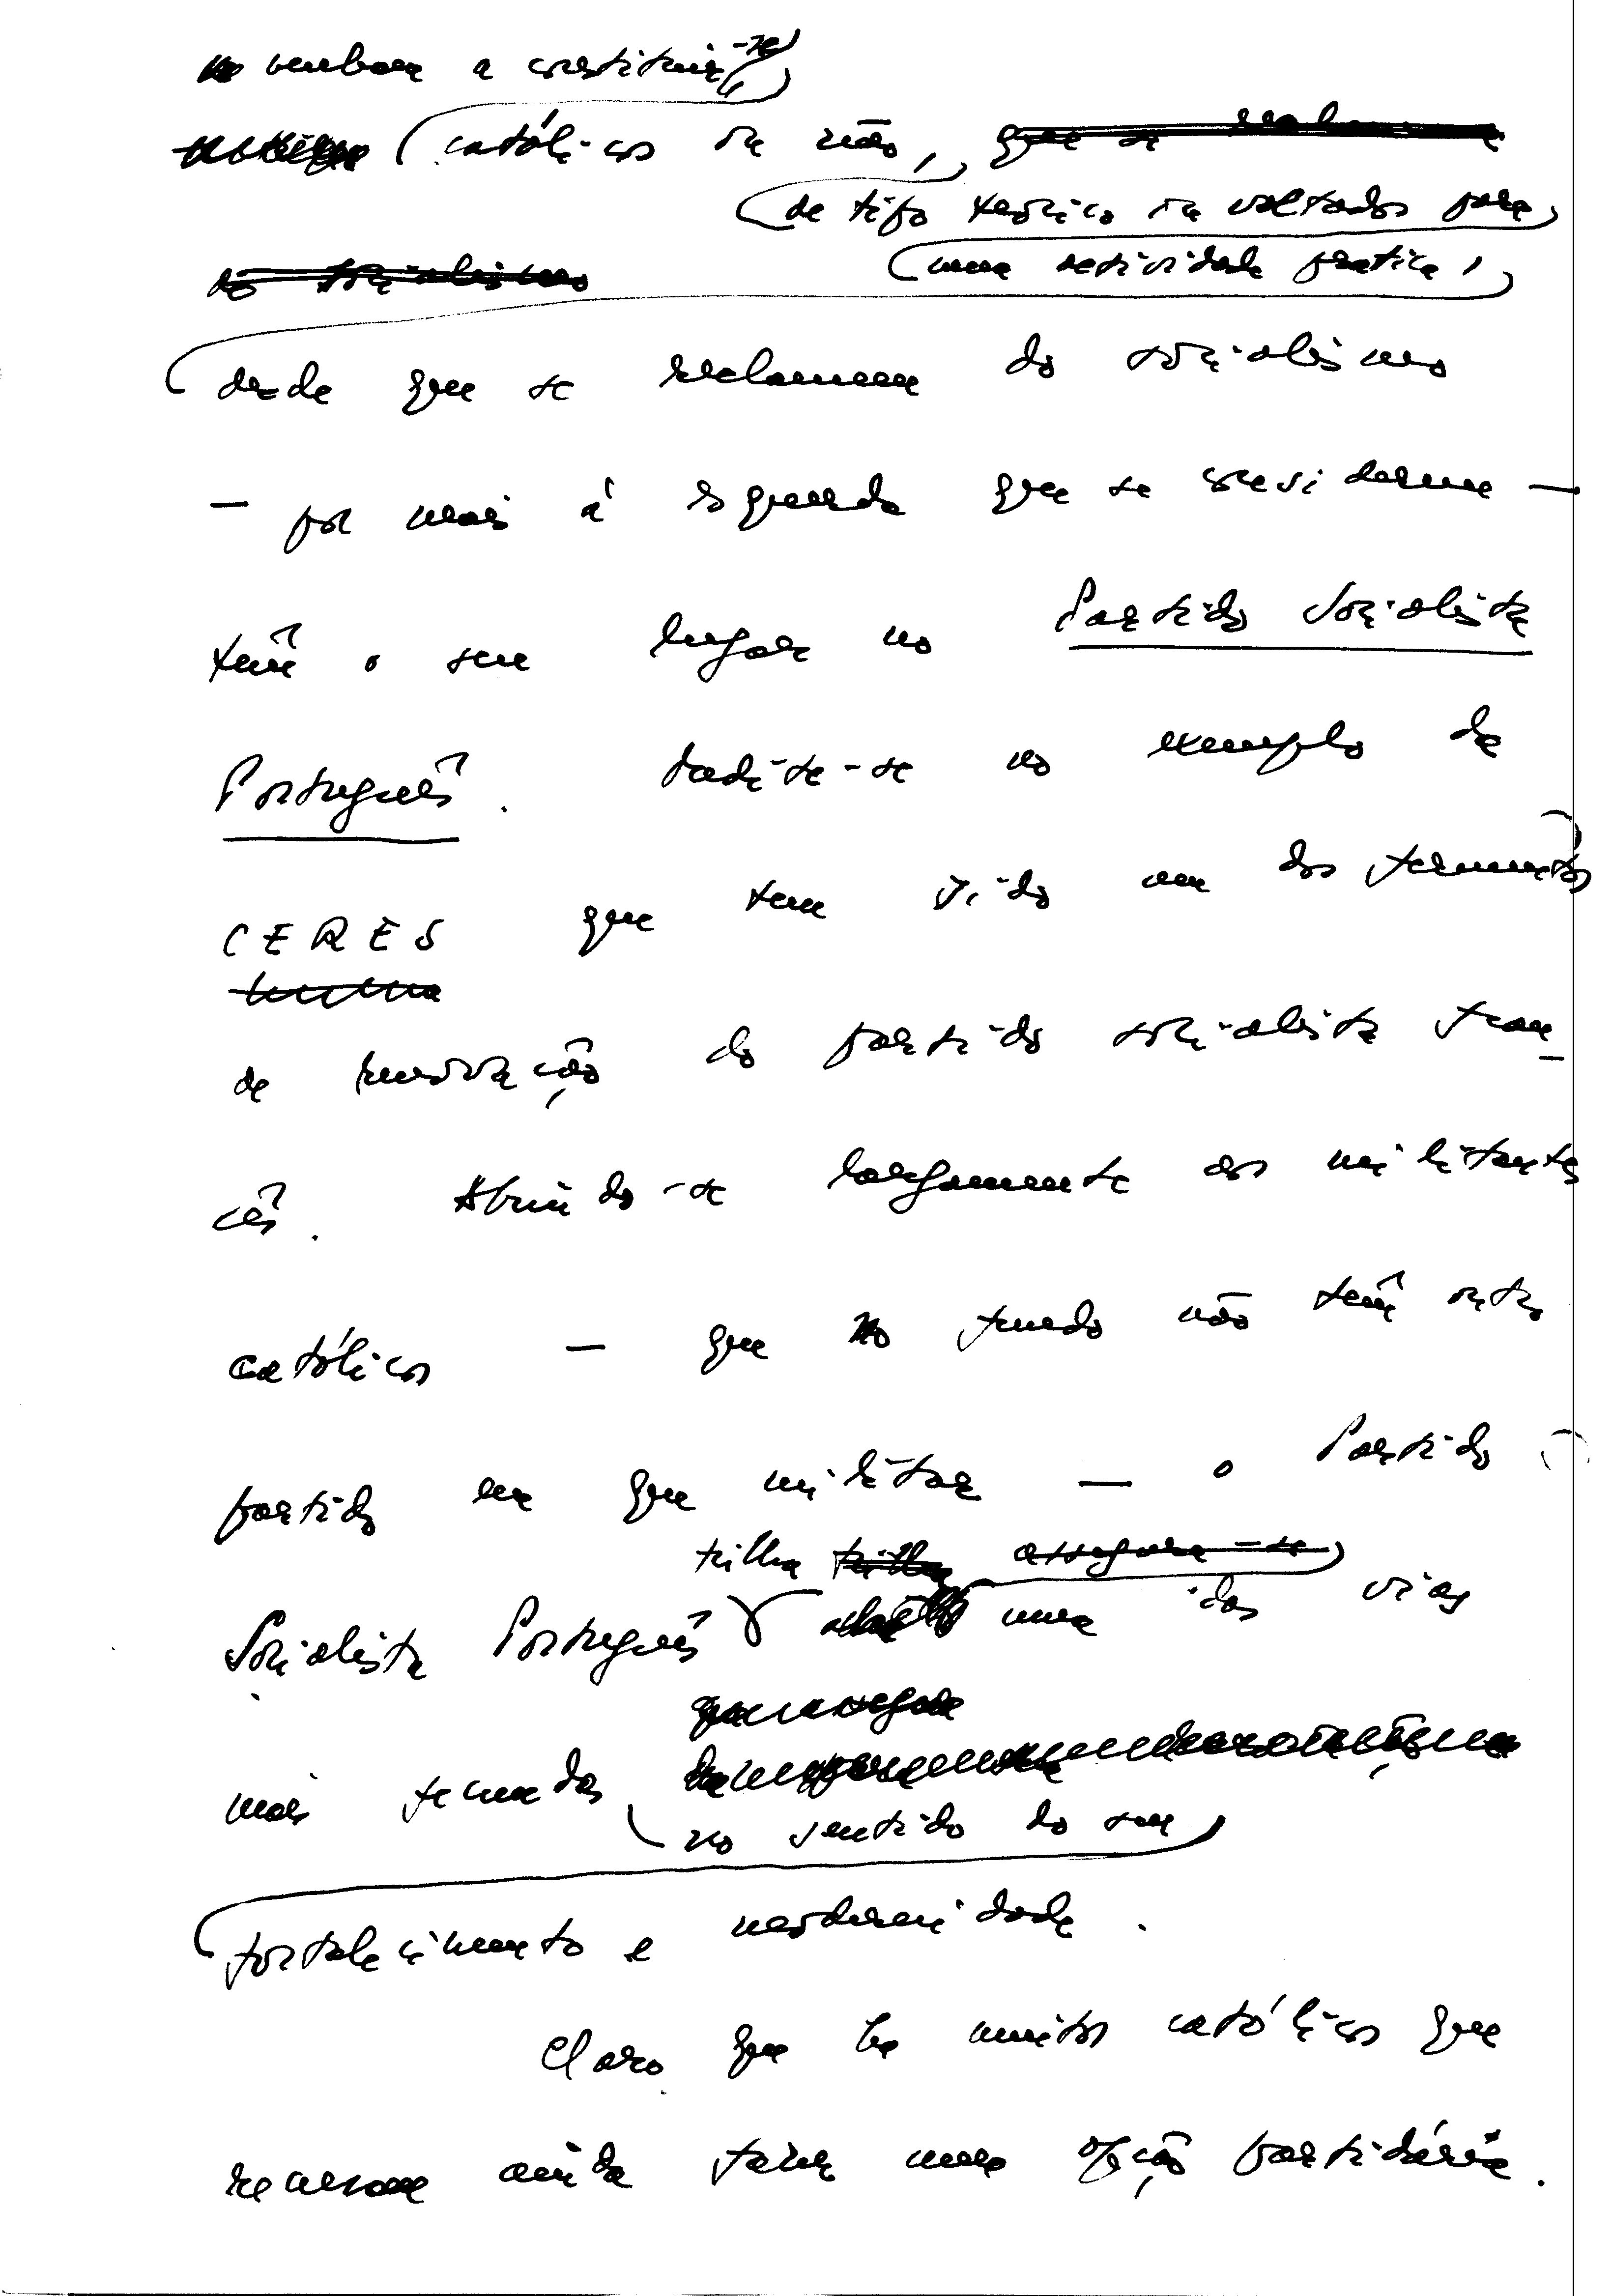 venham a constituir-se
católicos ou não, que se reclamem
de tipo teórico ou voltados para
uma actividade pratica,
do socialismo
desde que se reclamem do socialismo
— por mais à esquerda que se considerem —
têm o seu lugar no Partido Socialista
Português. Medite-se no exemplo do
CERES que tem sido um dos fermentos
de renovação do partido socialista fran-
cês. Abrindo-se largamente aos militantes
católicos — que no fundo não têm outro
partido em que militar — o Partido
trilha trilha assegura-se
Socialista Português uma das vias
que assegura
mais fecundas
no sentido do seu
fortalecimento e modernidade.
Claro que há muitos católicos que
recusam ainda fazer uma opção partidária.